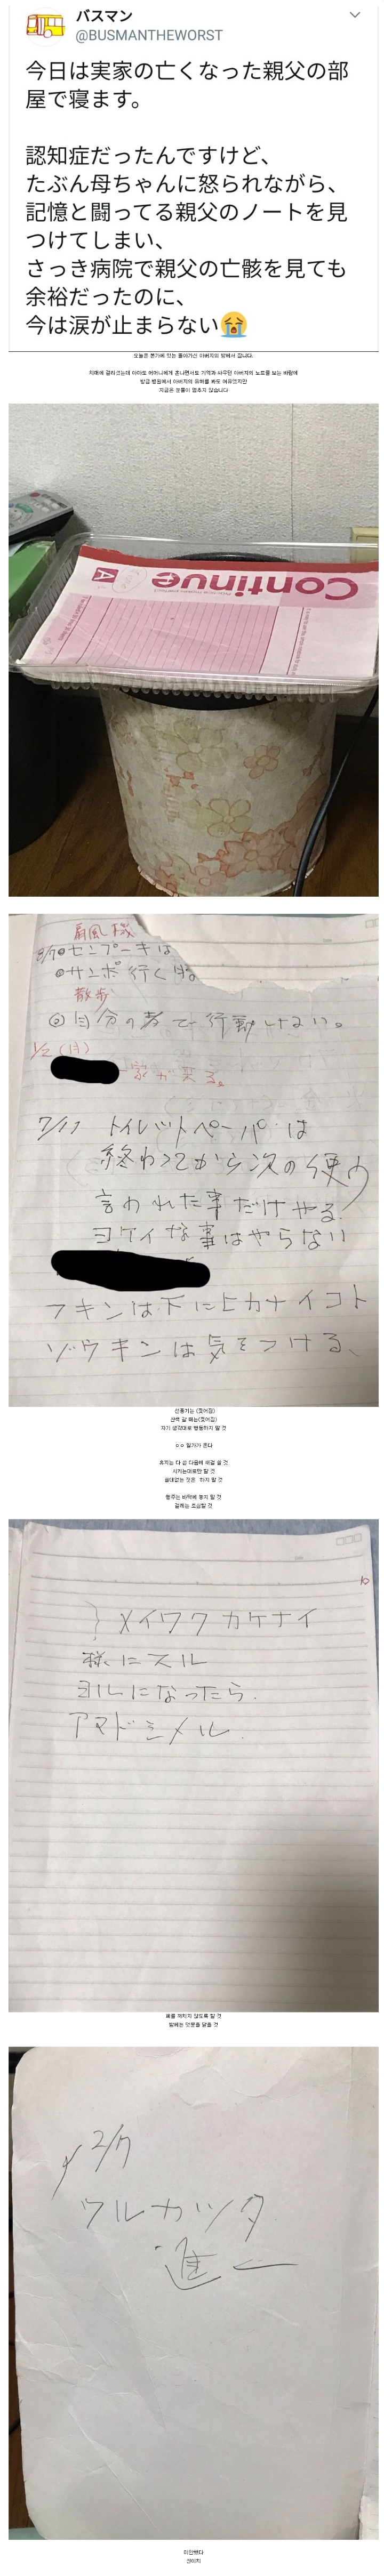 バスマン
@BUSMANTHEWORST
今日は実家の亡くなった親父の部
屋で寝ます。
認知症だったんですけど、
たぶん母ちゃんに怒られながら、
記憶と闘ってる親父のノートを見
つけてしまい、
さっき病院で親父の亡骸を見ても
余裕だったのに、
今は涙が止まらない😭
오늘은 본가에 있는 돌아가신 아버지의 방에서 잡니다.
치매에 걸리셨는데 아마도 어머니에게 혼나면서도 기억과 싸우던 아버지의 노트를 보는 바람에
방금 병원에서 아버지의 유해를 봐도 여유였지만
지금은 눈물이 멈추지 않습니다
Continue
A
扇風機
8/7 ◎センプーキは
◎サンポ行く時。
散歩
◎自分の考で行動しない。
1/2(月)
家が来る。
7/11 トイレットペーパーは
終わってから次の便う
言われた事だけやる.
ヨケイな事はやらない
フキンは下にヒカナイコト
ゾウキンは気をつける、
선풍기는 (찢어짐)
산책 갈 때는(찢어짐)
자기 생각대로 행동하지 말 것
ㅇㅇ 일가가 온다
휴지는 다 쓴 다음에 새걸 쓸 것
시키는대로만 할 것
쓸데없는 짓은 하지 말 것
행주는 바닥에 놓지 말 것
걸레는 조심할 것
メイワクカケナイ
様にスル
ヨルになったら.
アマドシメル.
폐를 끼치지 않도록 할 것
밤에는 덧문을 닫을 것
2/7
ワルカツタ
進一
미안했다
신이치